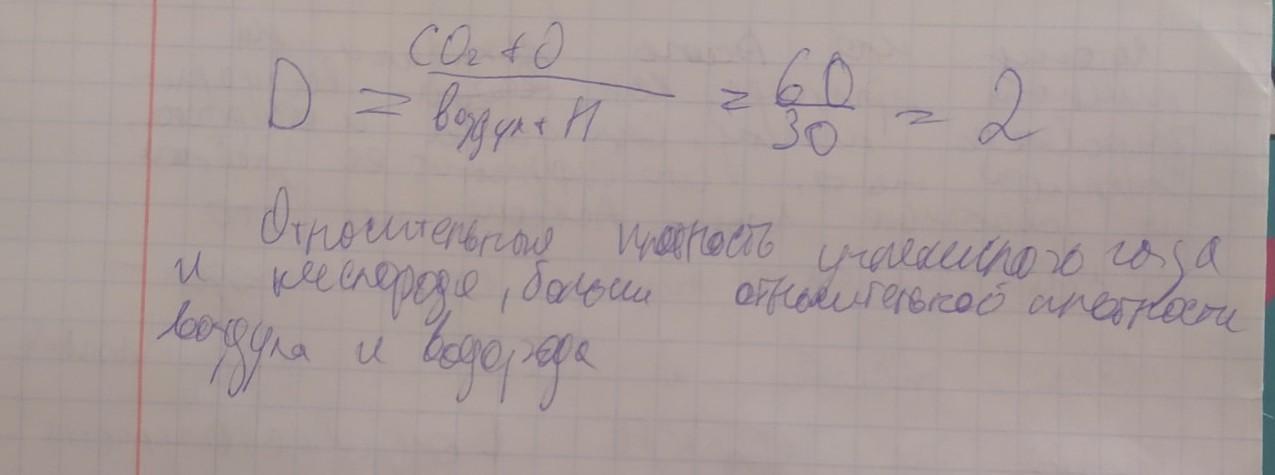 D = CO₂ + O / воздух + H = 60 / 30 = 2
Относительная плотность углекислого газа
и кислорода, больше относительной плотности
воздуха и водорода